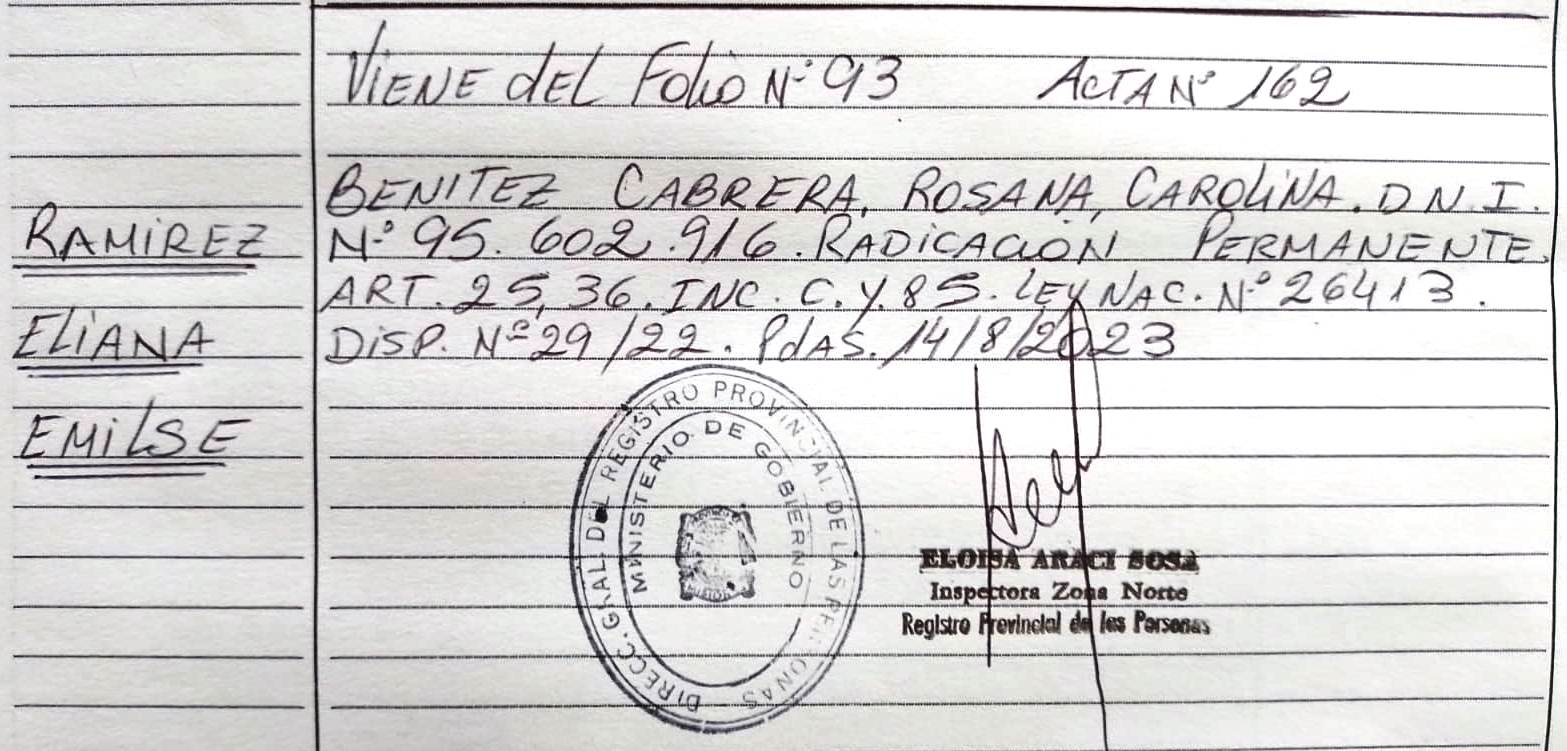 VIENE dEL Folio N° 93 ACTA N° 162
BENITEZ CABRERA, ROSANA, CAROLINA. D N. I.
N° 95. 602. 916. RADICACION PERMANENTE.
ART. 25, 36. INC. C. Y. 85. LEY NAC. N° 26413.
DISP. N° 29/22. PdAS. 14/8/2023
RAMIREZ
ELIANA
EMILSE
DIRECC. GRAL. DEL REGISTRO PROVINCIAL DE LAS PERSONAS
MINISTERIO DE GOBIERNO
ELOISA ARACI SOSA
Inspectora Zona Norte
Registro Provincial de las Personas